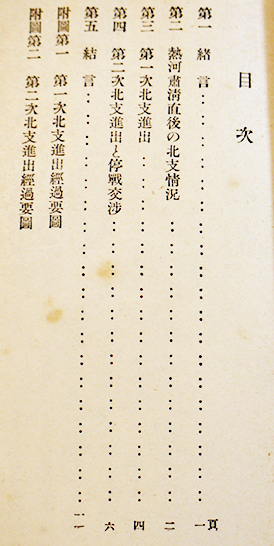 目次
第一 緒言‥‥‥‥‥‥‥‥‥‥‥‥‥‥一頁
第二 熱河肅淸直後の北支情況‥‥‥‥‥‥‥‥二
第三 第一次北支進出‥‥‥‥‥‥‥‥‥‥‥四
第四 第二次北支進出と停戰交涉‥‥‥‥‥‥‥六
第五 結言‥‥‥‥‥‥‥‥‥‥‥‥‥‥
附圖第一 第一次北支進出經過要圖
附圖第二 第二次北支進出經過要圖